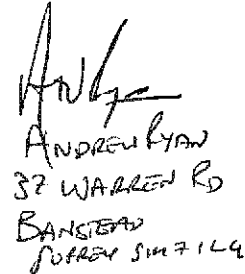 ANDREW RYAN
37 WARREN RD
BANSTEAD
SURREY SM7 1LG